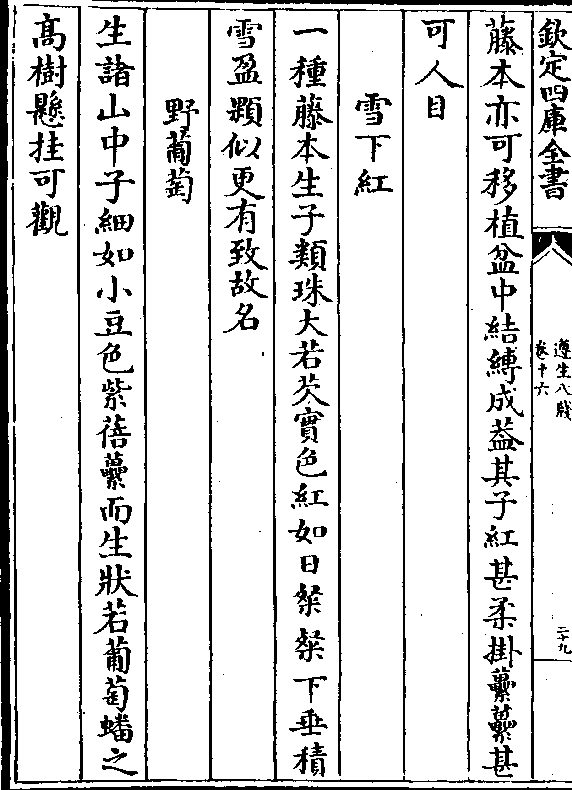 欽定四庫全書
遵生八牋
卷十六
二十九
藤本亦可移植盆中結縛成葢其子紅甚柔掛蘽蘽甚
可人目
雪下紅
一種藤本生子類珠大若芡實色紅如日粲粲下垂積
雪盈顆似更有致故名
野葡萄
生諸山中子細如小豆色紫蓓蘽而生狀若葡萄蟠之
高樹懸挂可觀